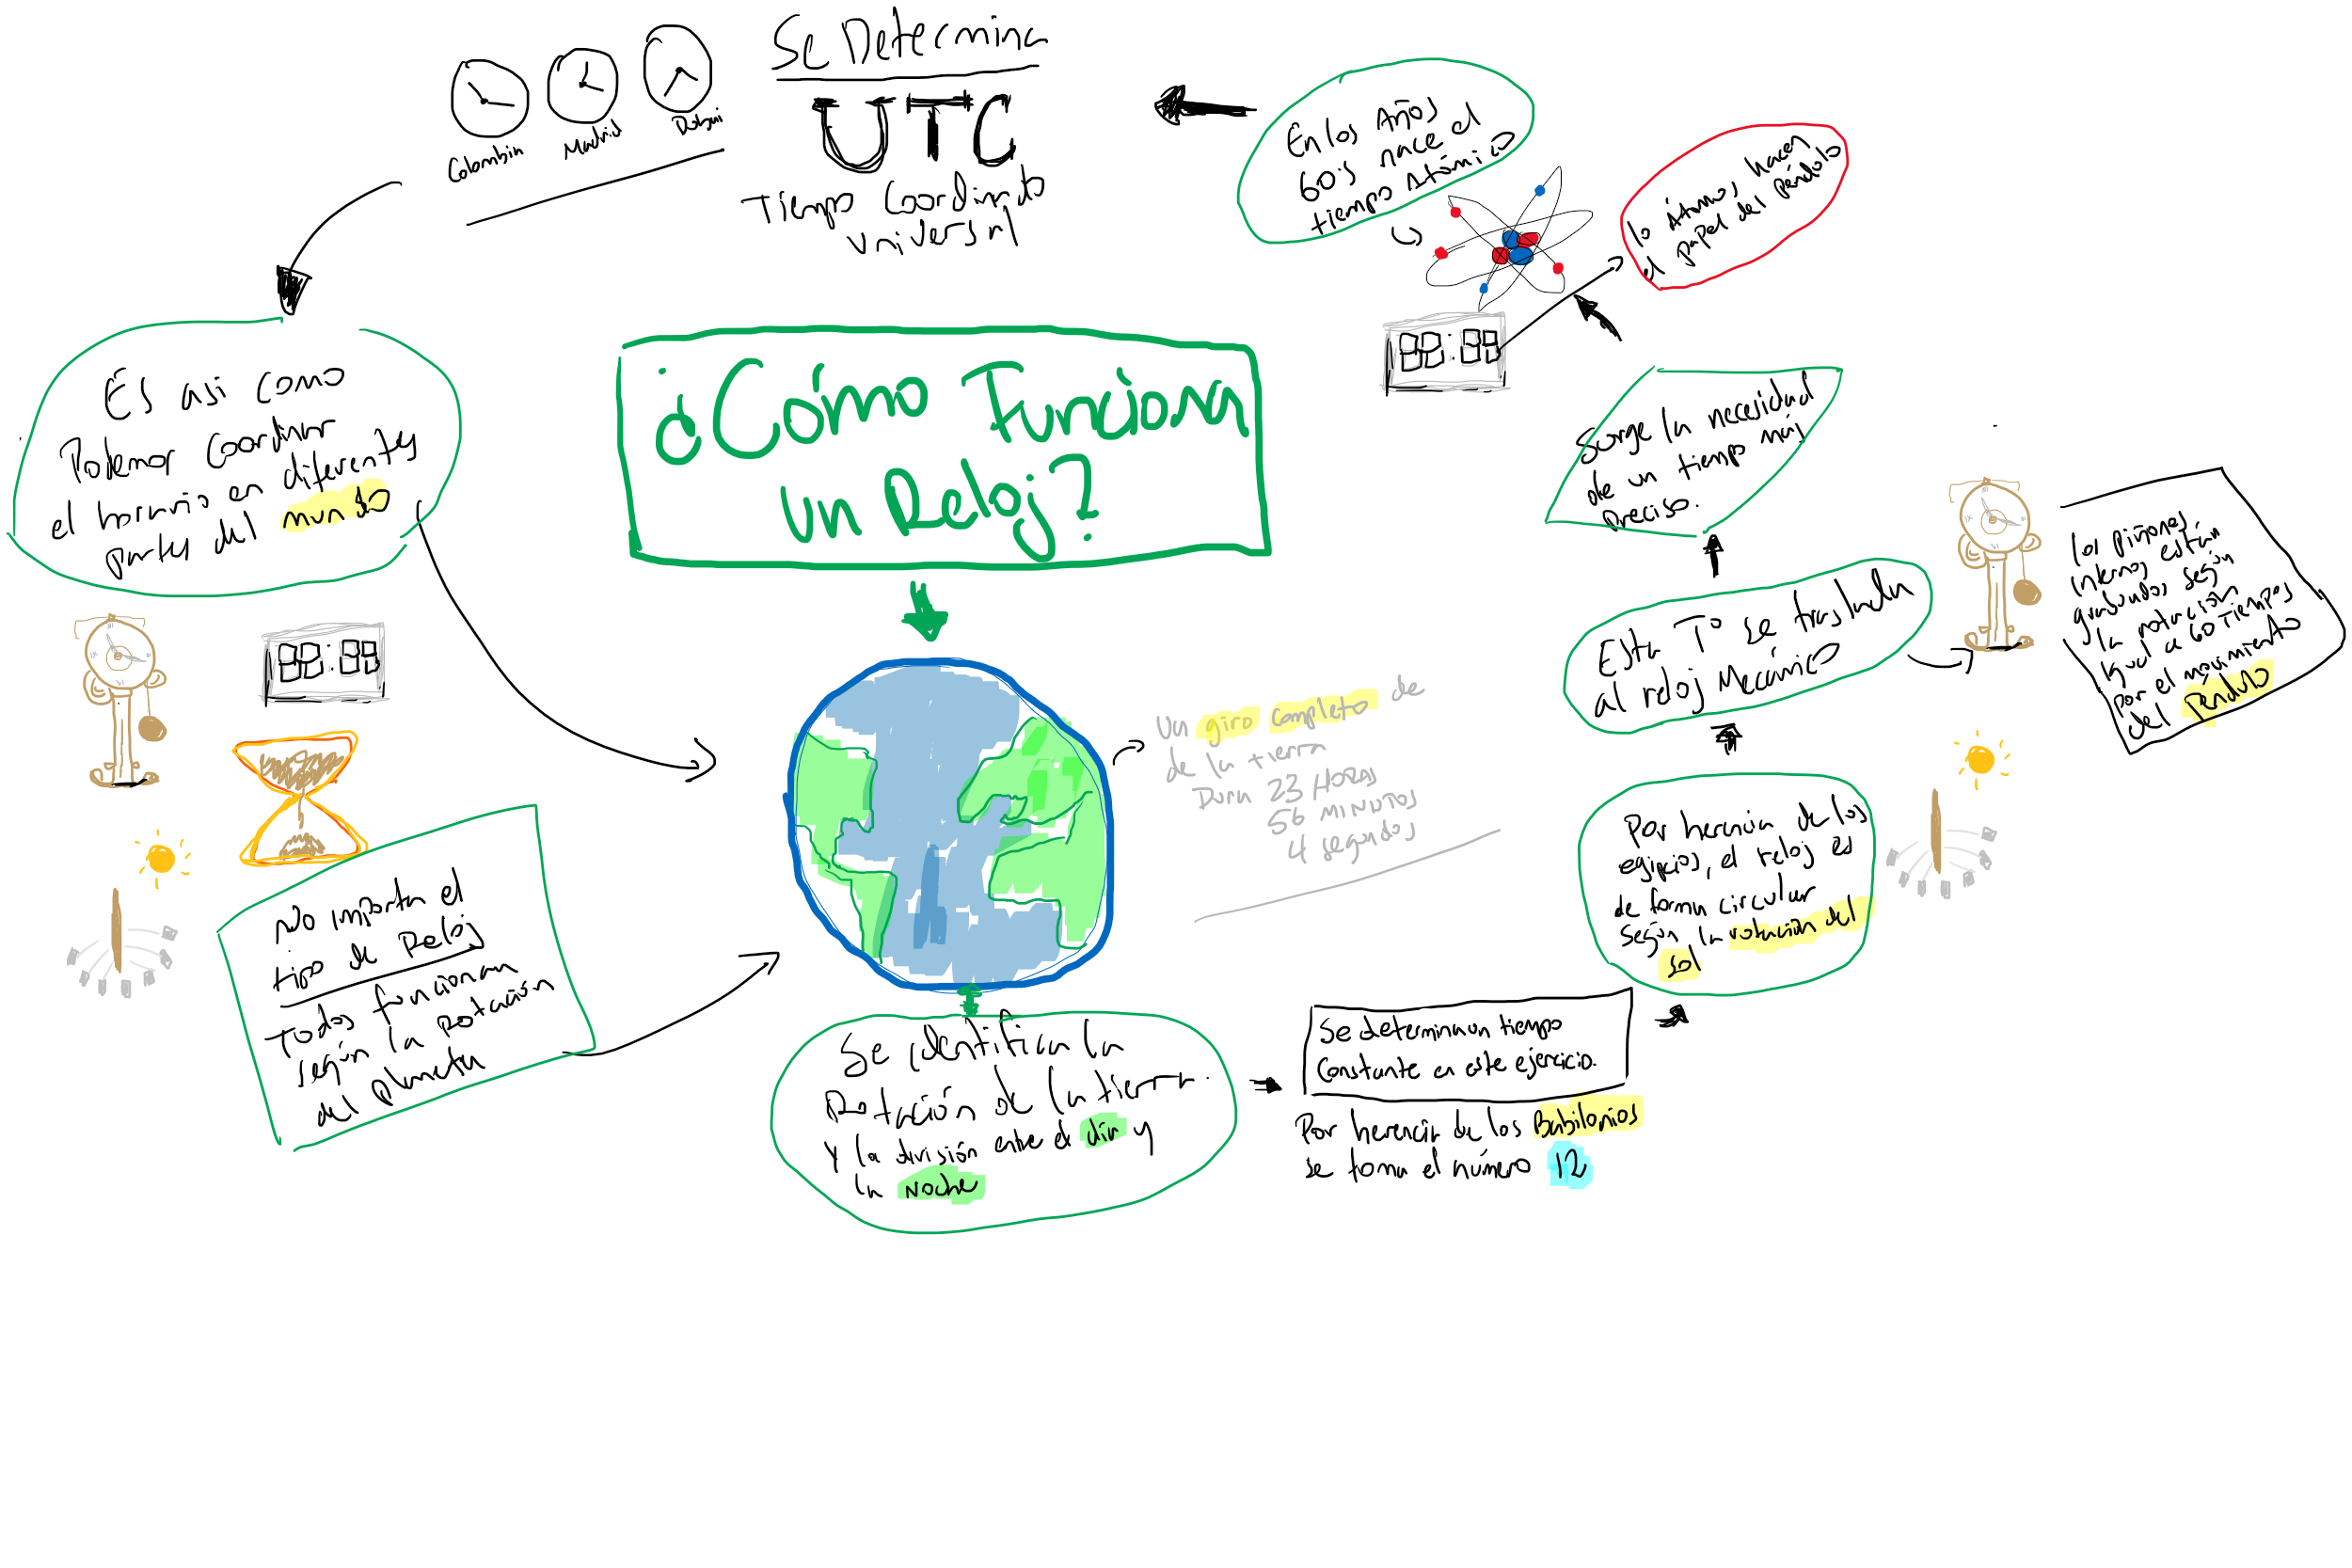 ¿Cómo Funciona
un Reloj?
Un giro completo de
de la tierra
Dura 23 HORAS
56 MINUTOS
4 segundos
Se identifica la
Rotación de la tierra.
Y la división entre el día y
la Noche
Se determina un tiempo
Constante en este ejercicio.
Por herencia de los Babilonios
se toma el número 12
Por herencia de los
egipcios, el reloj es
de forma circular
según la rotación del
sol
Esta T° se traslada
al reloj Mecánico
los piñones
internos están
graduados según
la rotación
igual a 60 Tiempos
por el movimiento
del Péndulo
Surge la necesidad
de un tiempo más
Preciso.
lo Átomos hacen
el papel del péndulo
En los Años
60's nace el
tiempo Atómico
Se Determina
UTC
Tiempo Coordinado
Universal
Colombia
Madrid
Es asi como
Podemor Coordinar
el horario en diferentes
partes del mundo
No importa el
tipo de Reloj
Todos funcionan
según la Rotación
del planeta